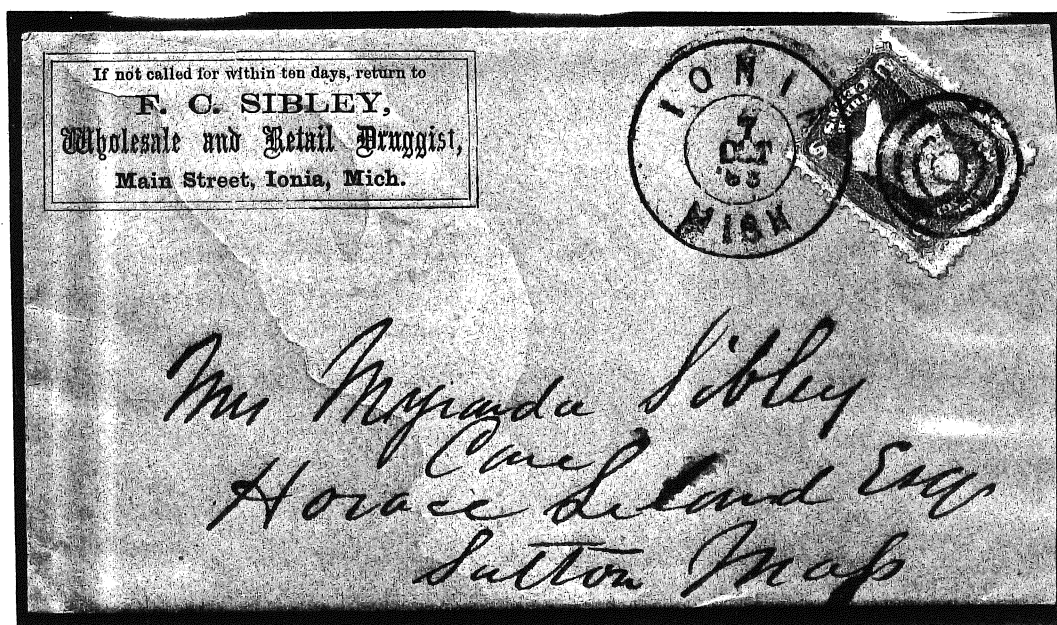 If not called for within ten days, return to
F. C. SIBLEY,
Wholesale and Retail Druggist,
Main Street, Ionia, Mich.
IONIA
7
OCT
MICH
Mrs Myranda Sibley
Care
Horace Leland Esq
Sutton Mass